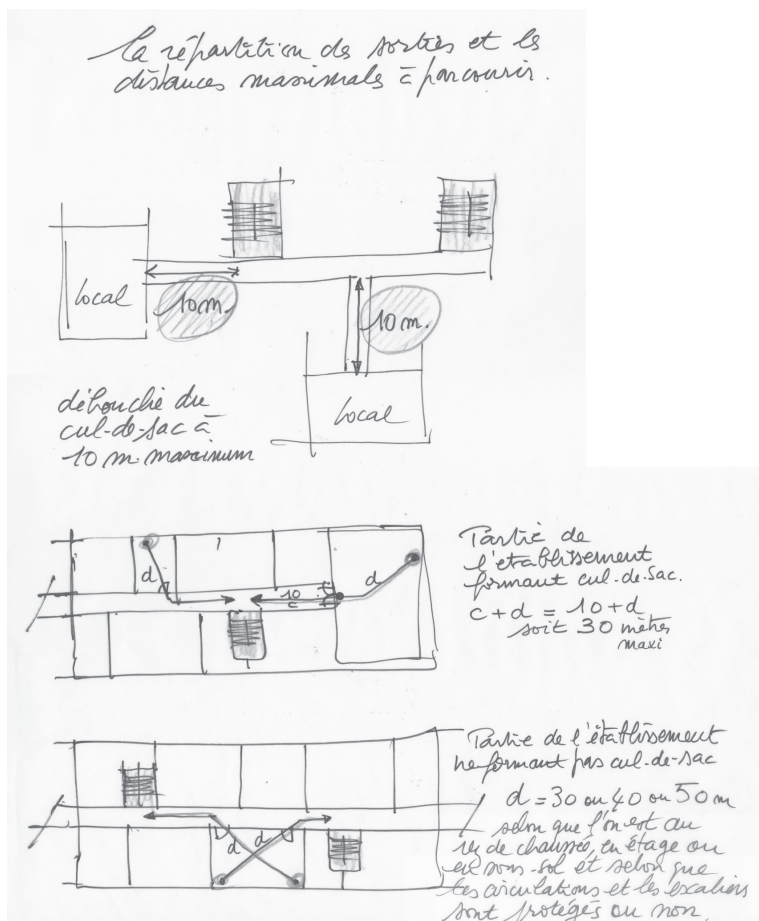 la répartition des sorties et les
distances maximales à parcourir.
local
10 m.
10 m.
local
débouché du
cul-de-sac à
10 m. maximum
d
10
c
d
Partie de
l'établissement
formant cul-de-sac.
c + d = 10 + d
soit 30 mètres
maxi
d
d
Partie de l'établissement
ne formant pas cul-de-sac
d = 30 ou 40 ou 50 m
selon que l'on est au
rez de chaussée, en étage ou
en sous-sol et selon que
les circulations et les escaliers
sont protégés ou non.